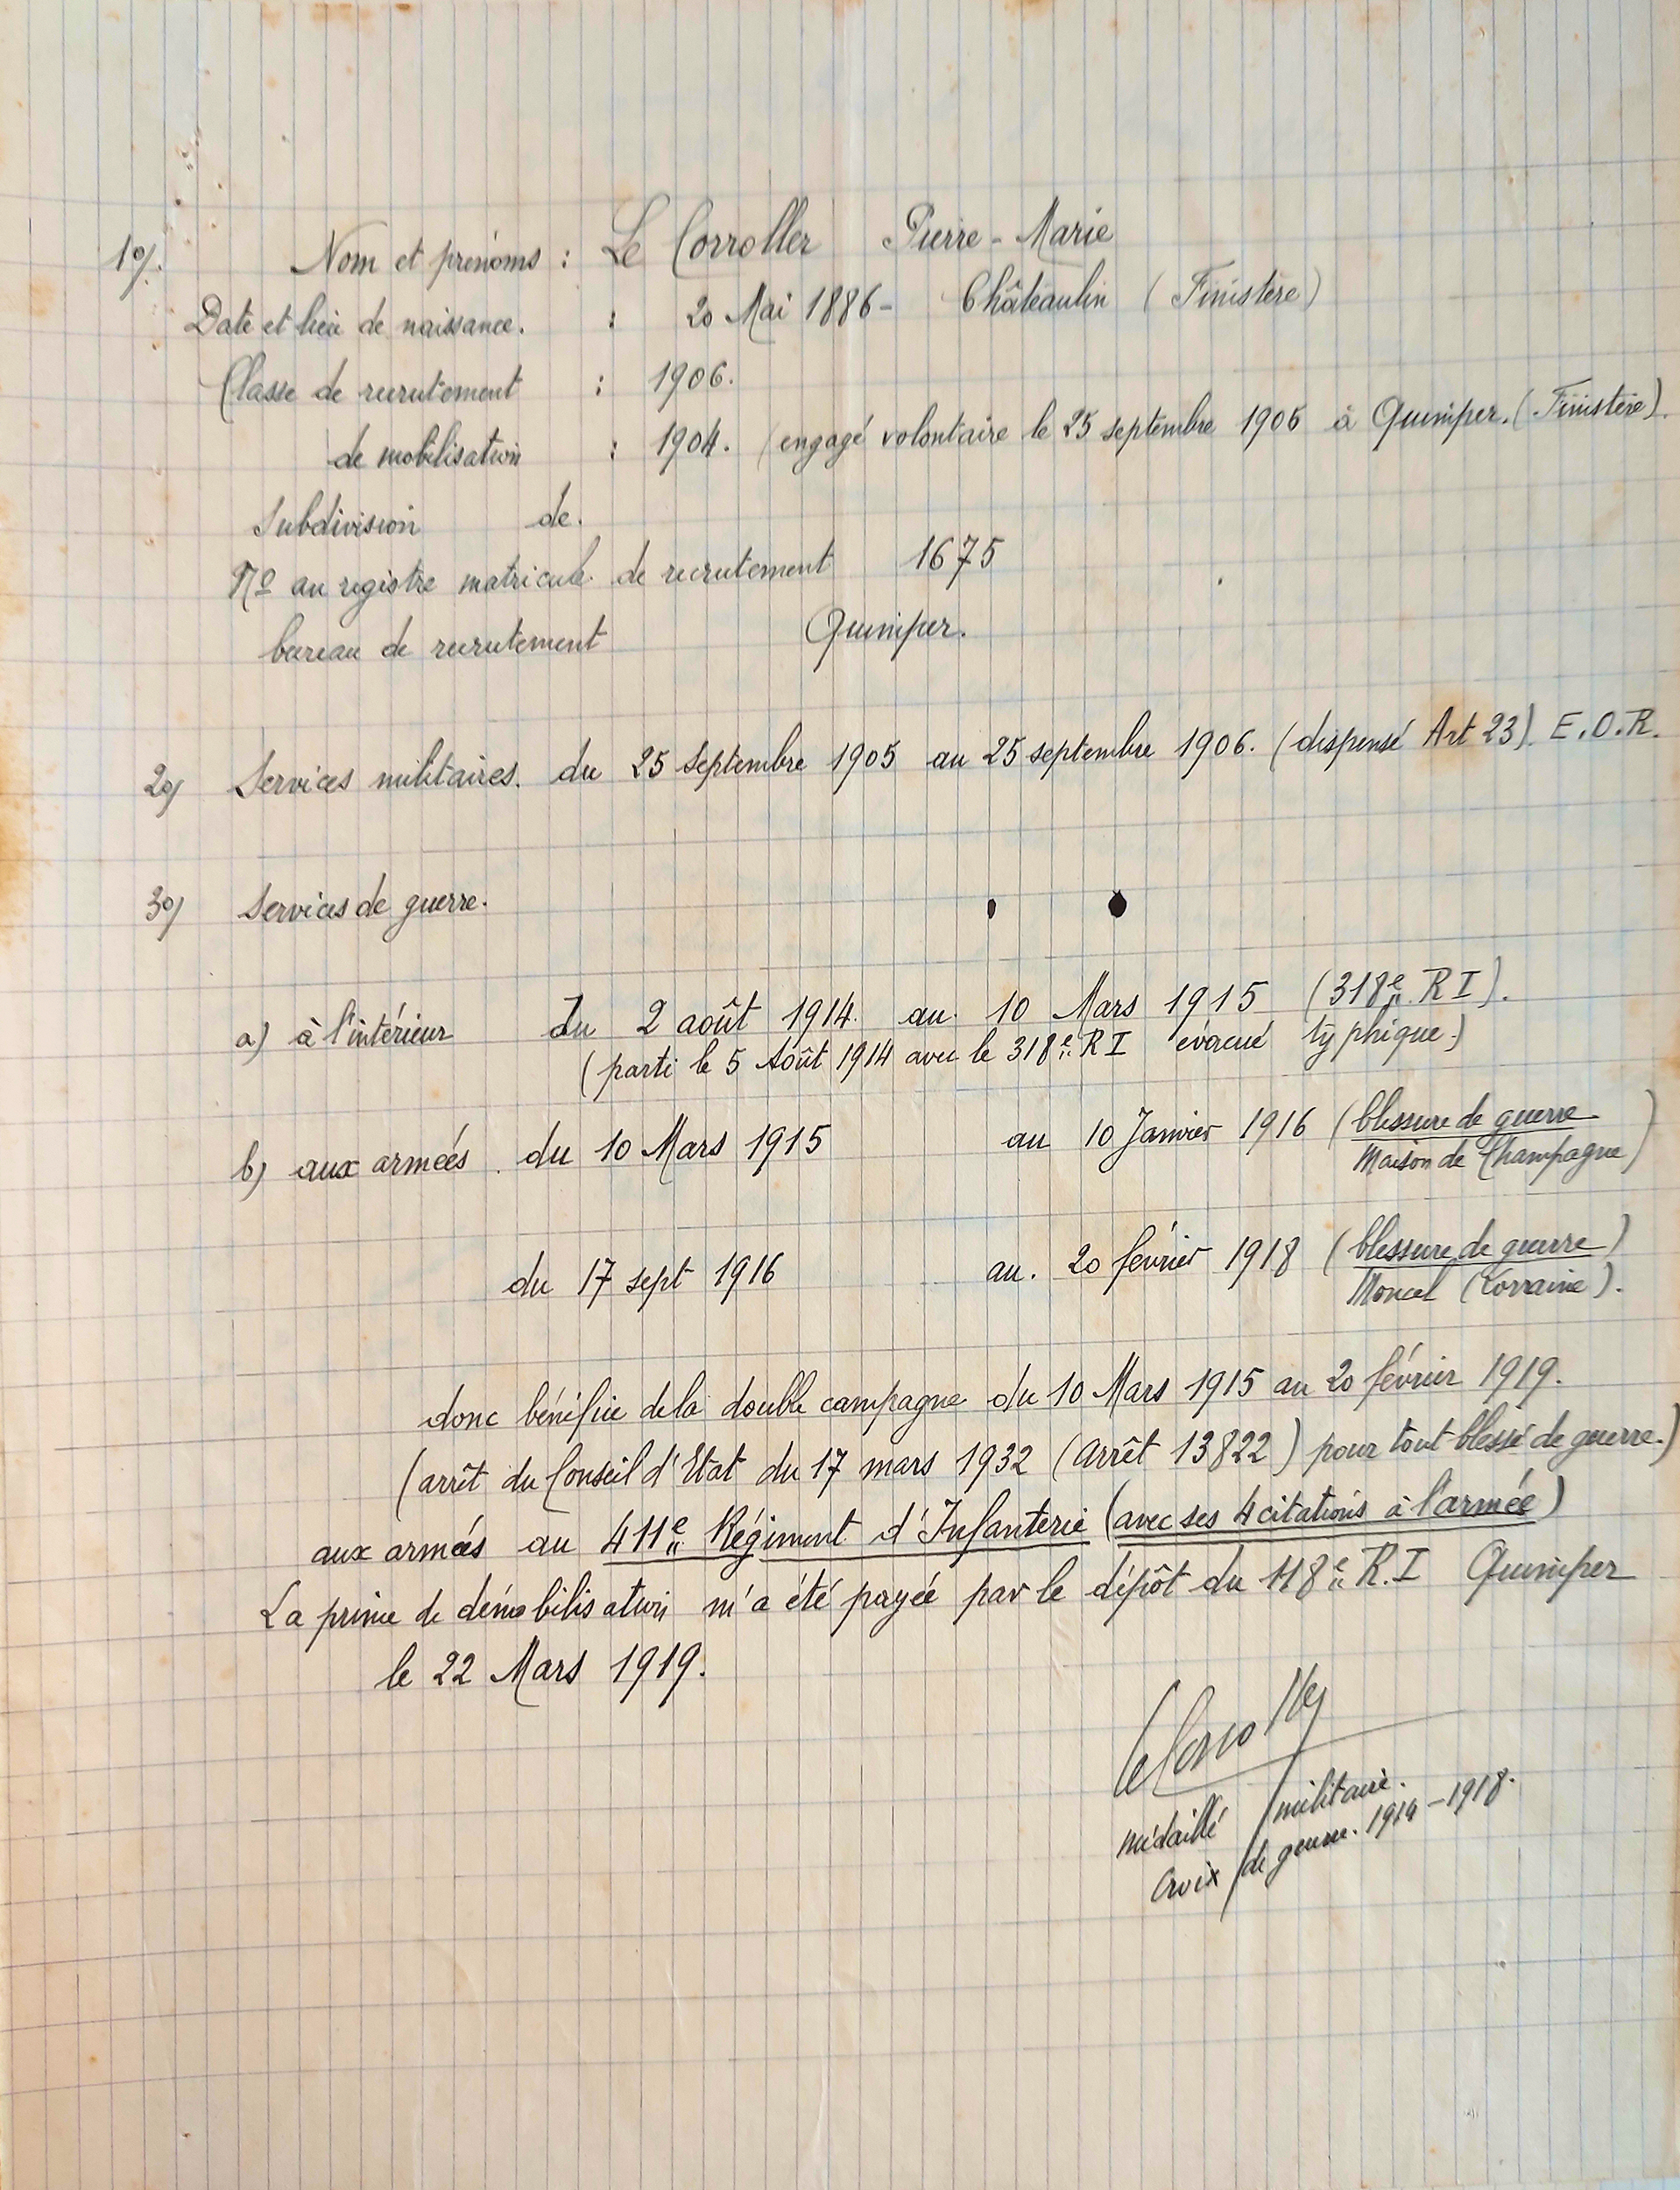 1º/. Nom et prénoms : Le Corroller Pierre-Marie
Date et lieu de naissance. : 20 Mai 1886 - Châteaulin (Finistère)
Classe de recrutement : 1906.
de mobilisation : 1904. (engagé volontaire le 25 septembre 1905 à Quimper. (Finistère).
Subdivision de.
Nº au registre matricule de recrutement 1675
bureau de recrutement Quimper.
2º/ Services militaires. du 25 Septembre 1905 au 25 septembre 1906. (dispensé Art 23). E.O.R.
3º/ Services de guerre.
a) à l'intérieur Du 2 août 1914. au 10 Mars 1915 (318e RI).
(parti le 5 Août 1914 avec le 318e RI évacué typhique.)
b) aux armées. du 10 Mars 1915 au 10 Janvier 1916 (blessure de guerre
Maison de Champagne)
du 17 sept 1916 au. 20 février 1918 (blessure de guerre)
Moncel (Lorraine).
donc bénéficie de la double campagne du 10 Mars 1915 au 20 février 1919.
(arrêt du Conseil d'Etat du 17 mars 1932 (Arrêt 13822) pour tout blessé de guerre.)
aux armées au 411e Régiment d'Infanterie (avec ses 4 citations à l'armée)
La prime de démobilisation m'a été payée par le dépôt du 118e R.I Quimper
le 22 Mars 1919.
Le Corroller
médaillé militaire.
Croix de guerre. 1914-1918.